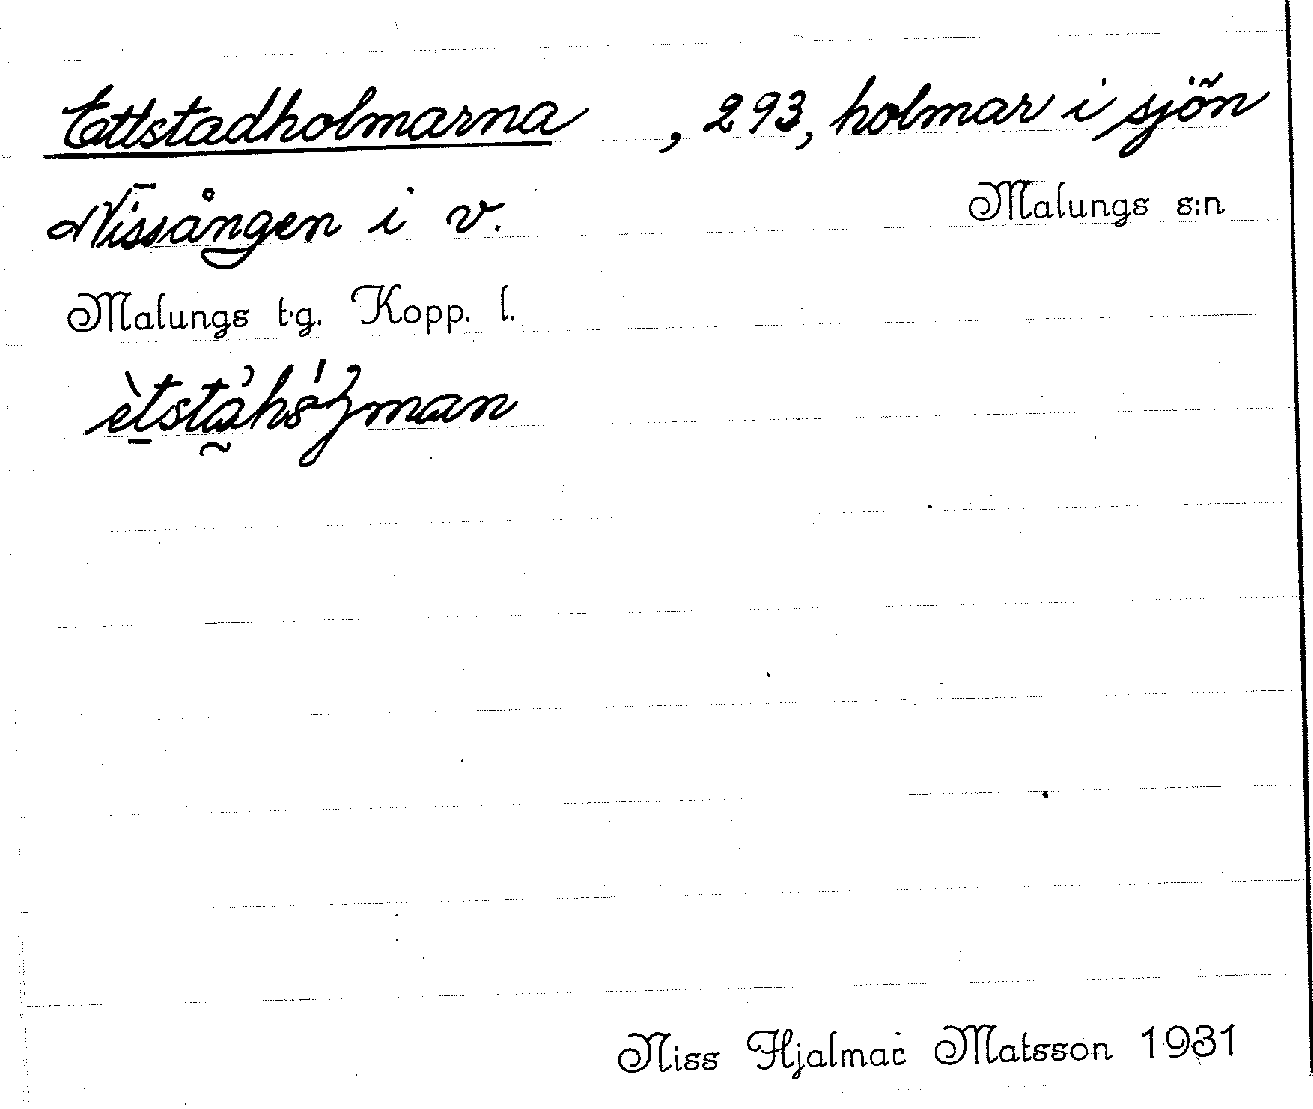 Ettstadholmarna, 293, holmar i sjön
Nissången i v. Malungs s:n
Malungs t.g. Kopp. l.
Niss Hjalmar Matsson 1931